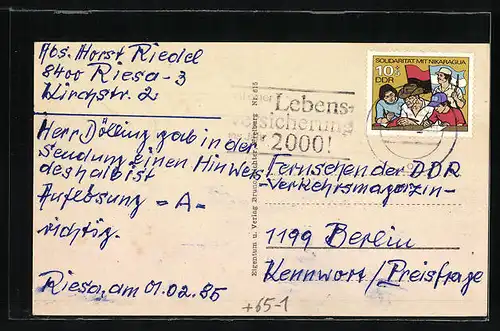 Abs. Horst Riedel
8400 Riesa-3
Kirchstr. 2
Herr Dölling gab in der
Sendung einen Hinweis
deshalb ist
Auflösung -A-
richtig.
Riesa, am 01.02.85
Lebens-
versicherung
2000!
SOLIDARITÄT MIT NIKARAGUA
10+5
DDR
Eigentum u. Verlag Bruno
Fernsehen der DDR
-Verkehrsmagazin-
1199 Berlin
Kennwort/Preisfrage
+65-1